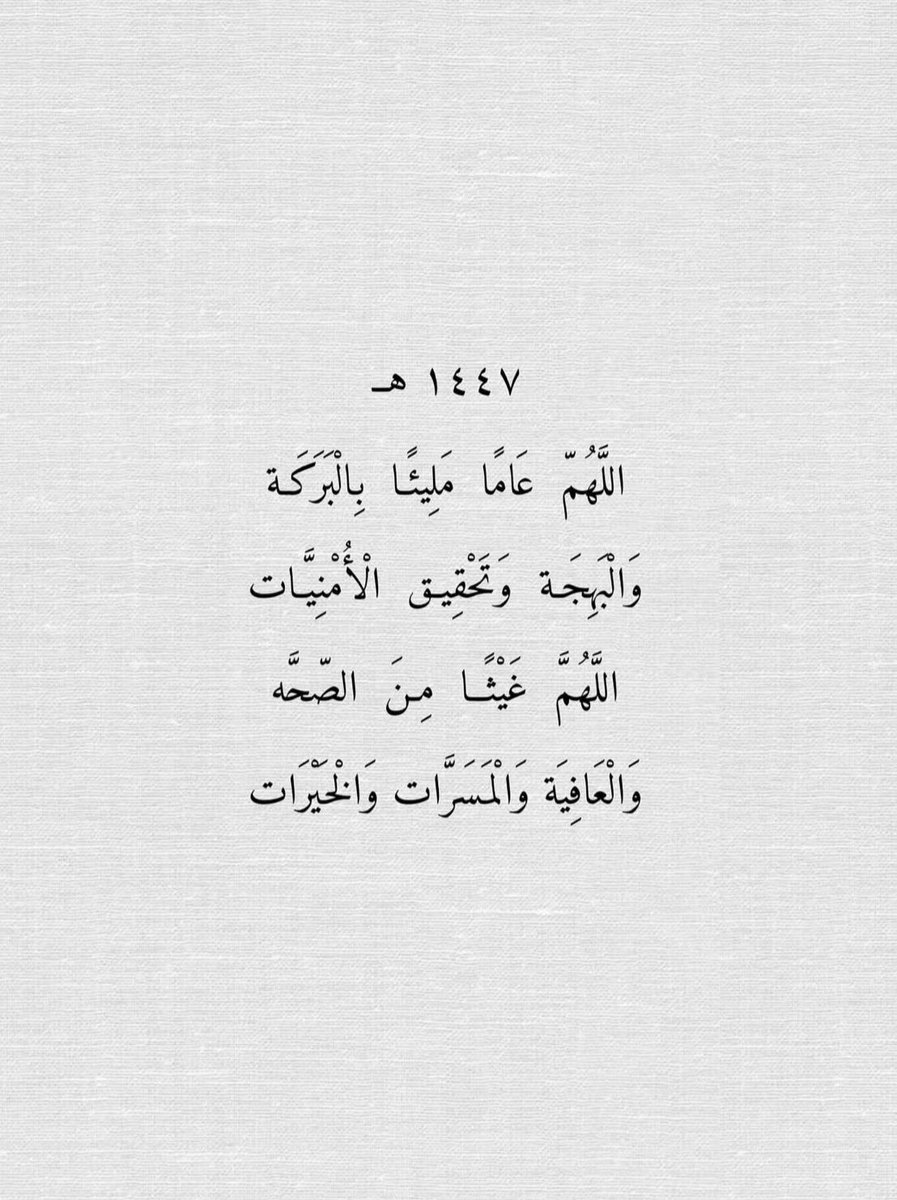 ١٤٤٧ هـ
اللَّهُمّ عَامًا مَلِيئًـا بِالْبَرَكَـة
وَالْبَهِجَـة وَتَحْقِيـق الْأُمْنِيَّـات
اللَّهُمَّ غَيْثًـا مِـنَ الصّحَّه
وَالْعَافِيَة وَالْمَسَرَّات وَالْخَيْرَات